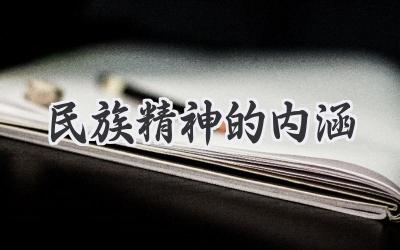 民族精神的内涵